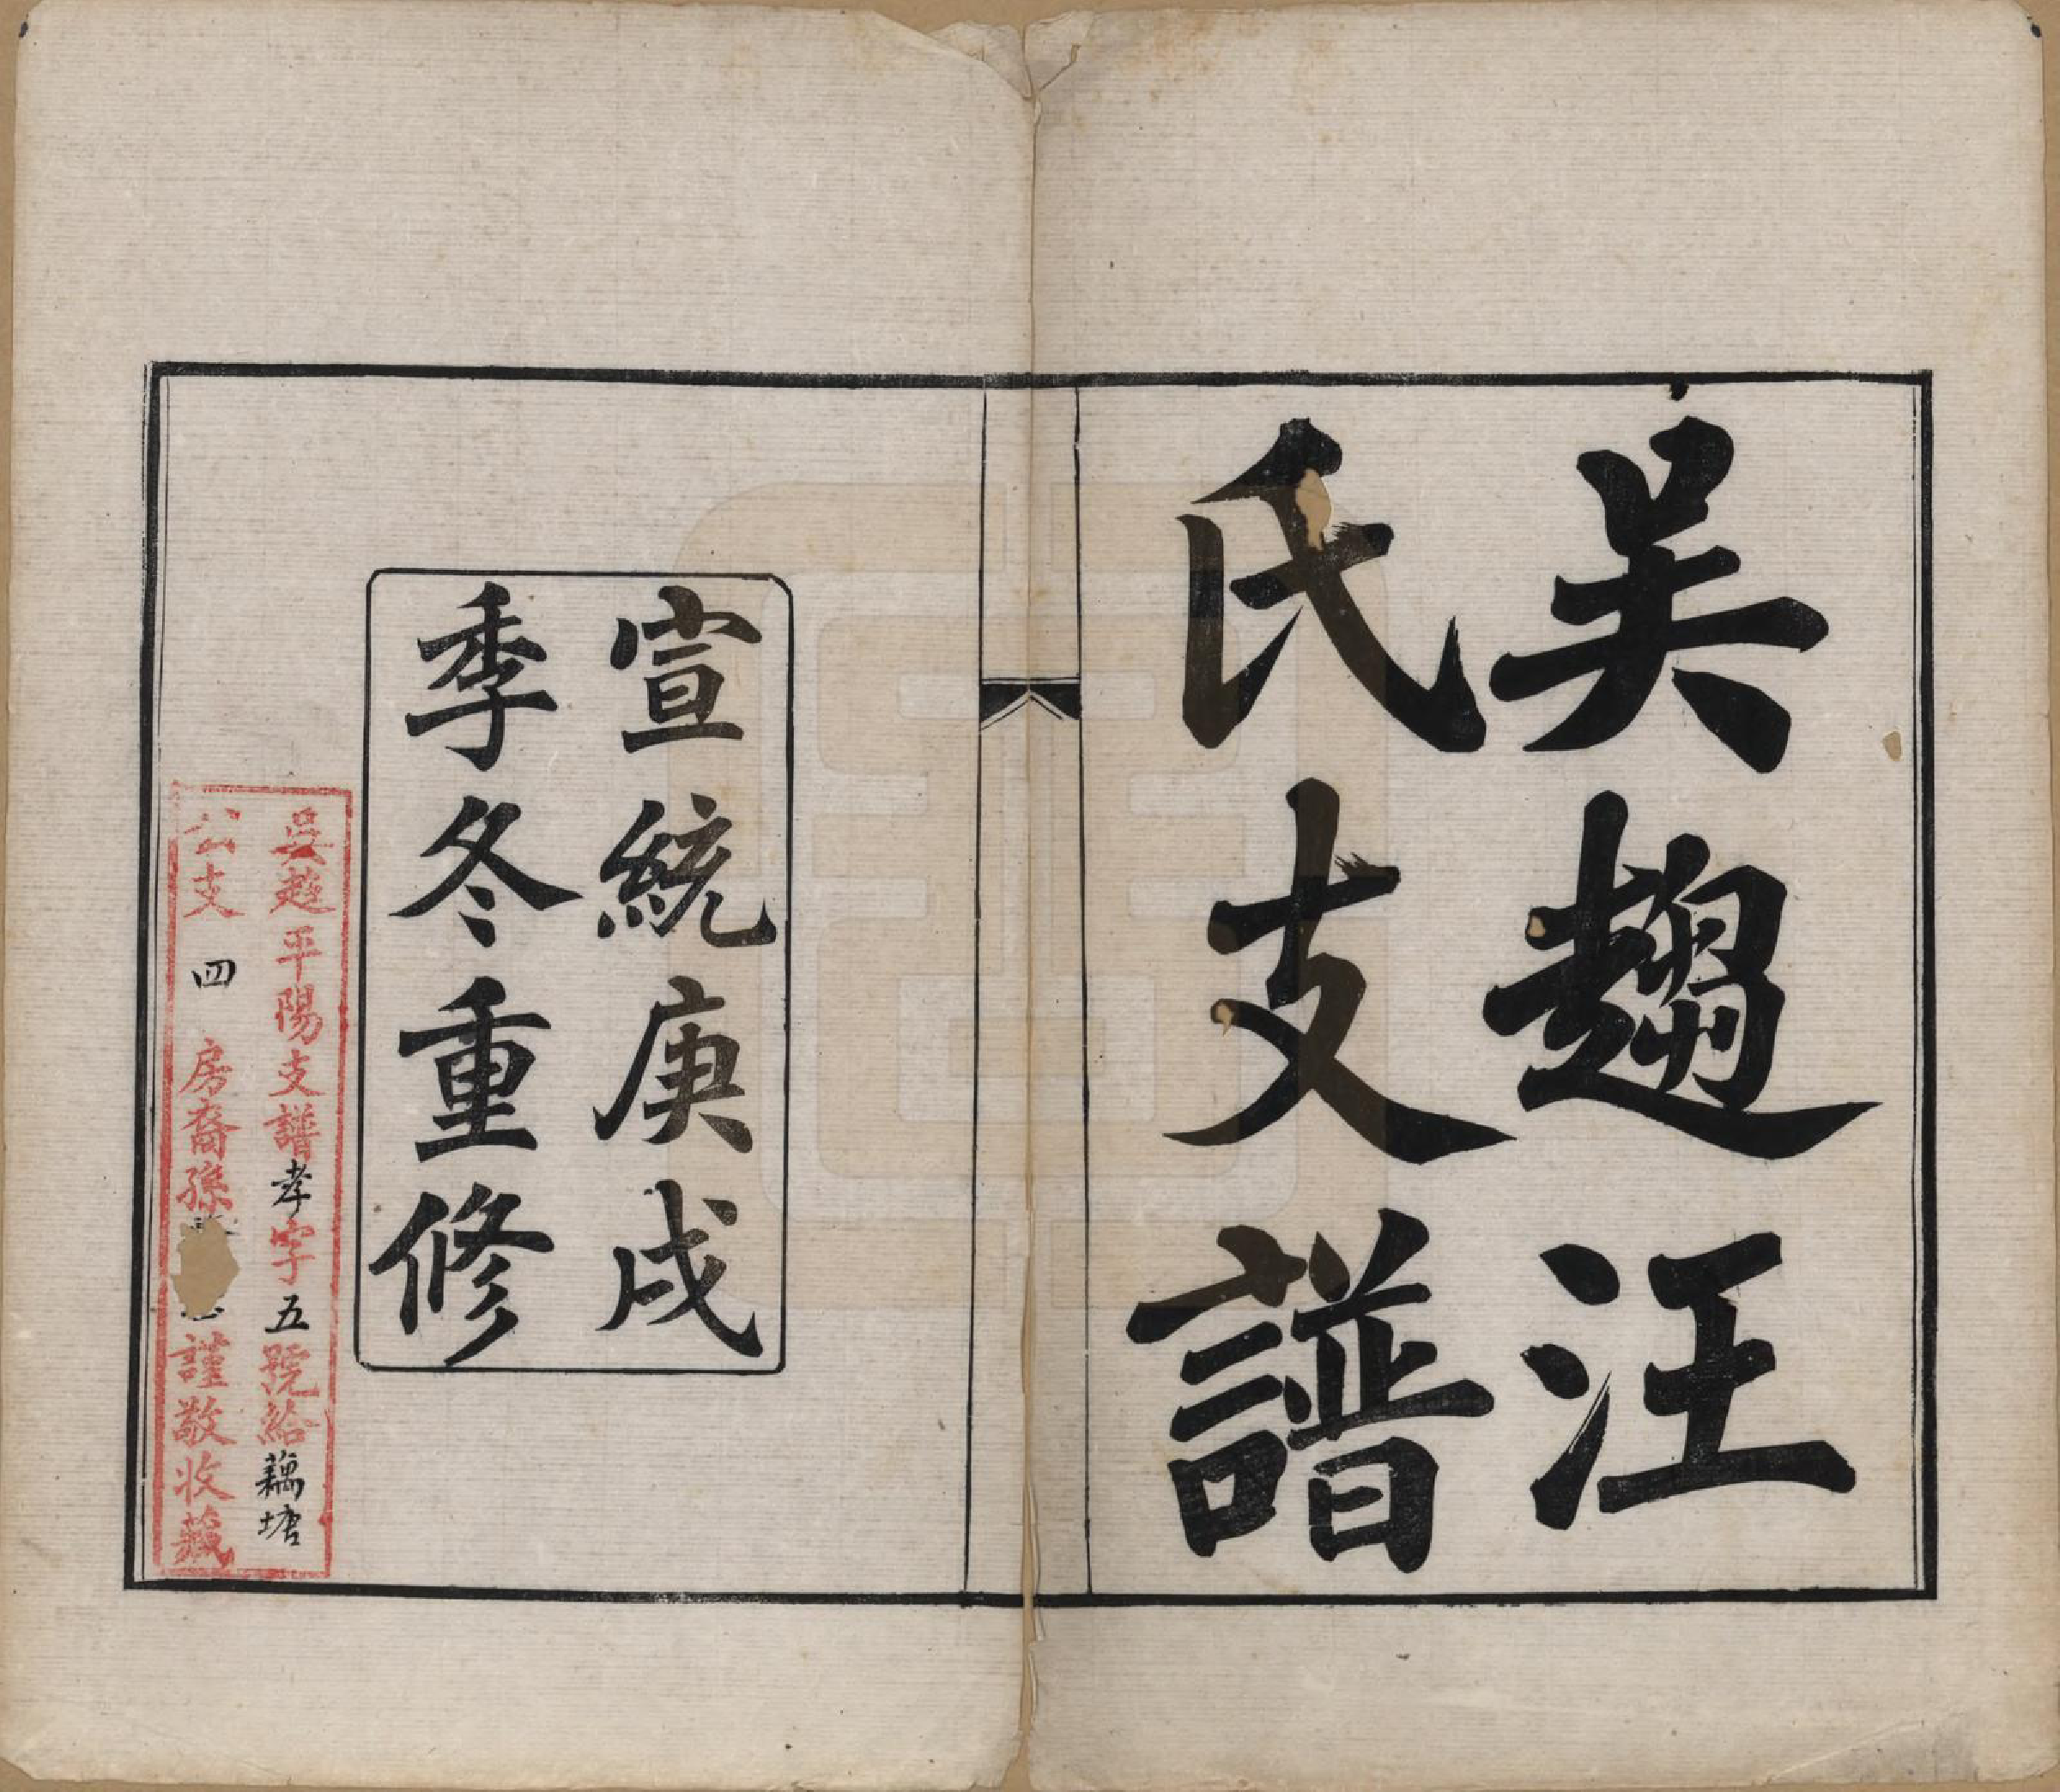 吴趨汪
氏支譜
宣統庚戌
季冬重修
吳趨平陽支譜孝字五號給藕塘
公支四房裔孫謹敬收藏